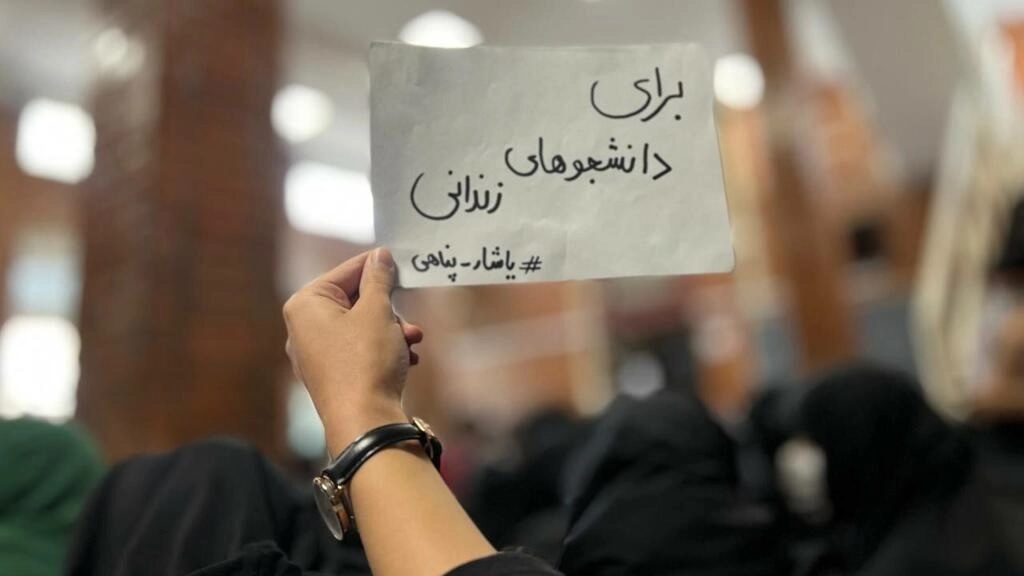 برای
دانشجوهای
زندانی
#یاشار-پناهی